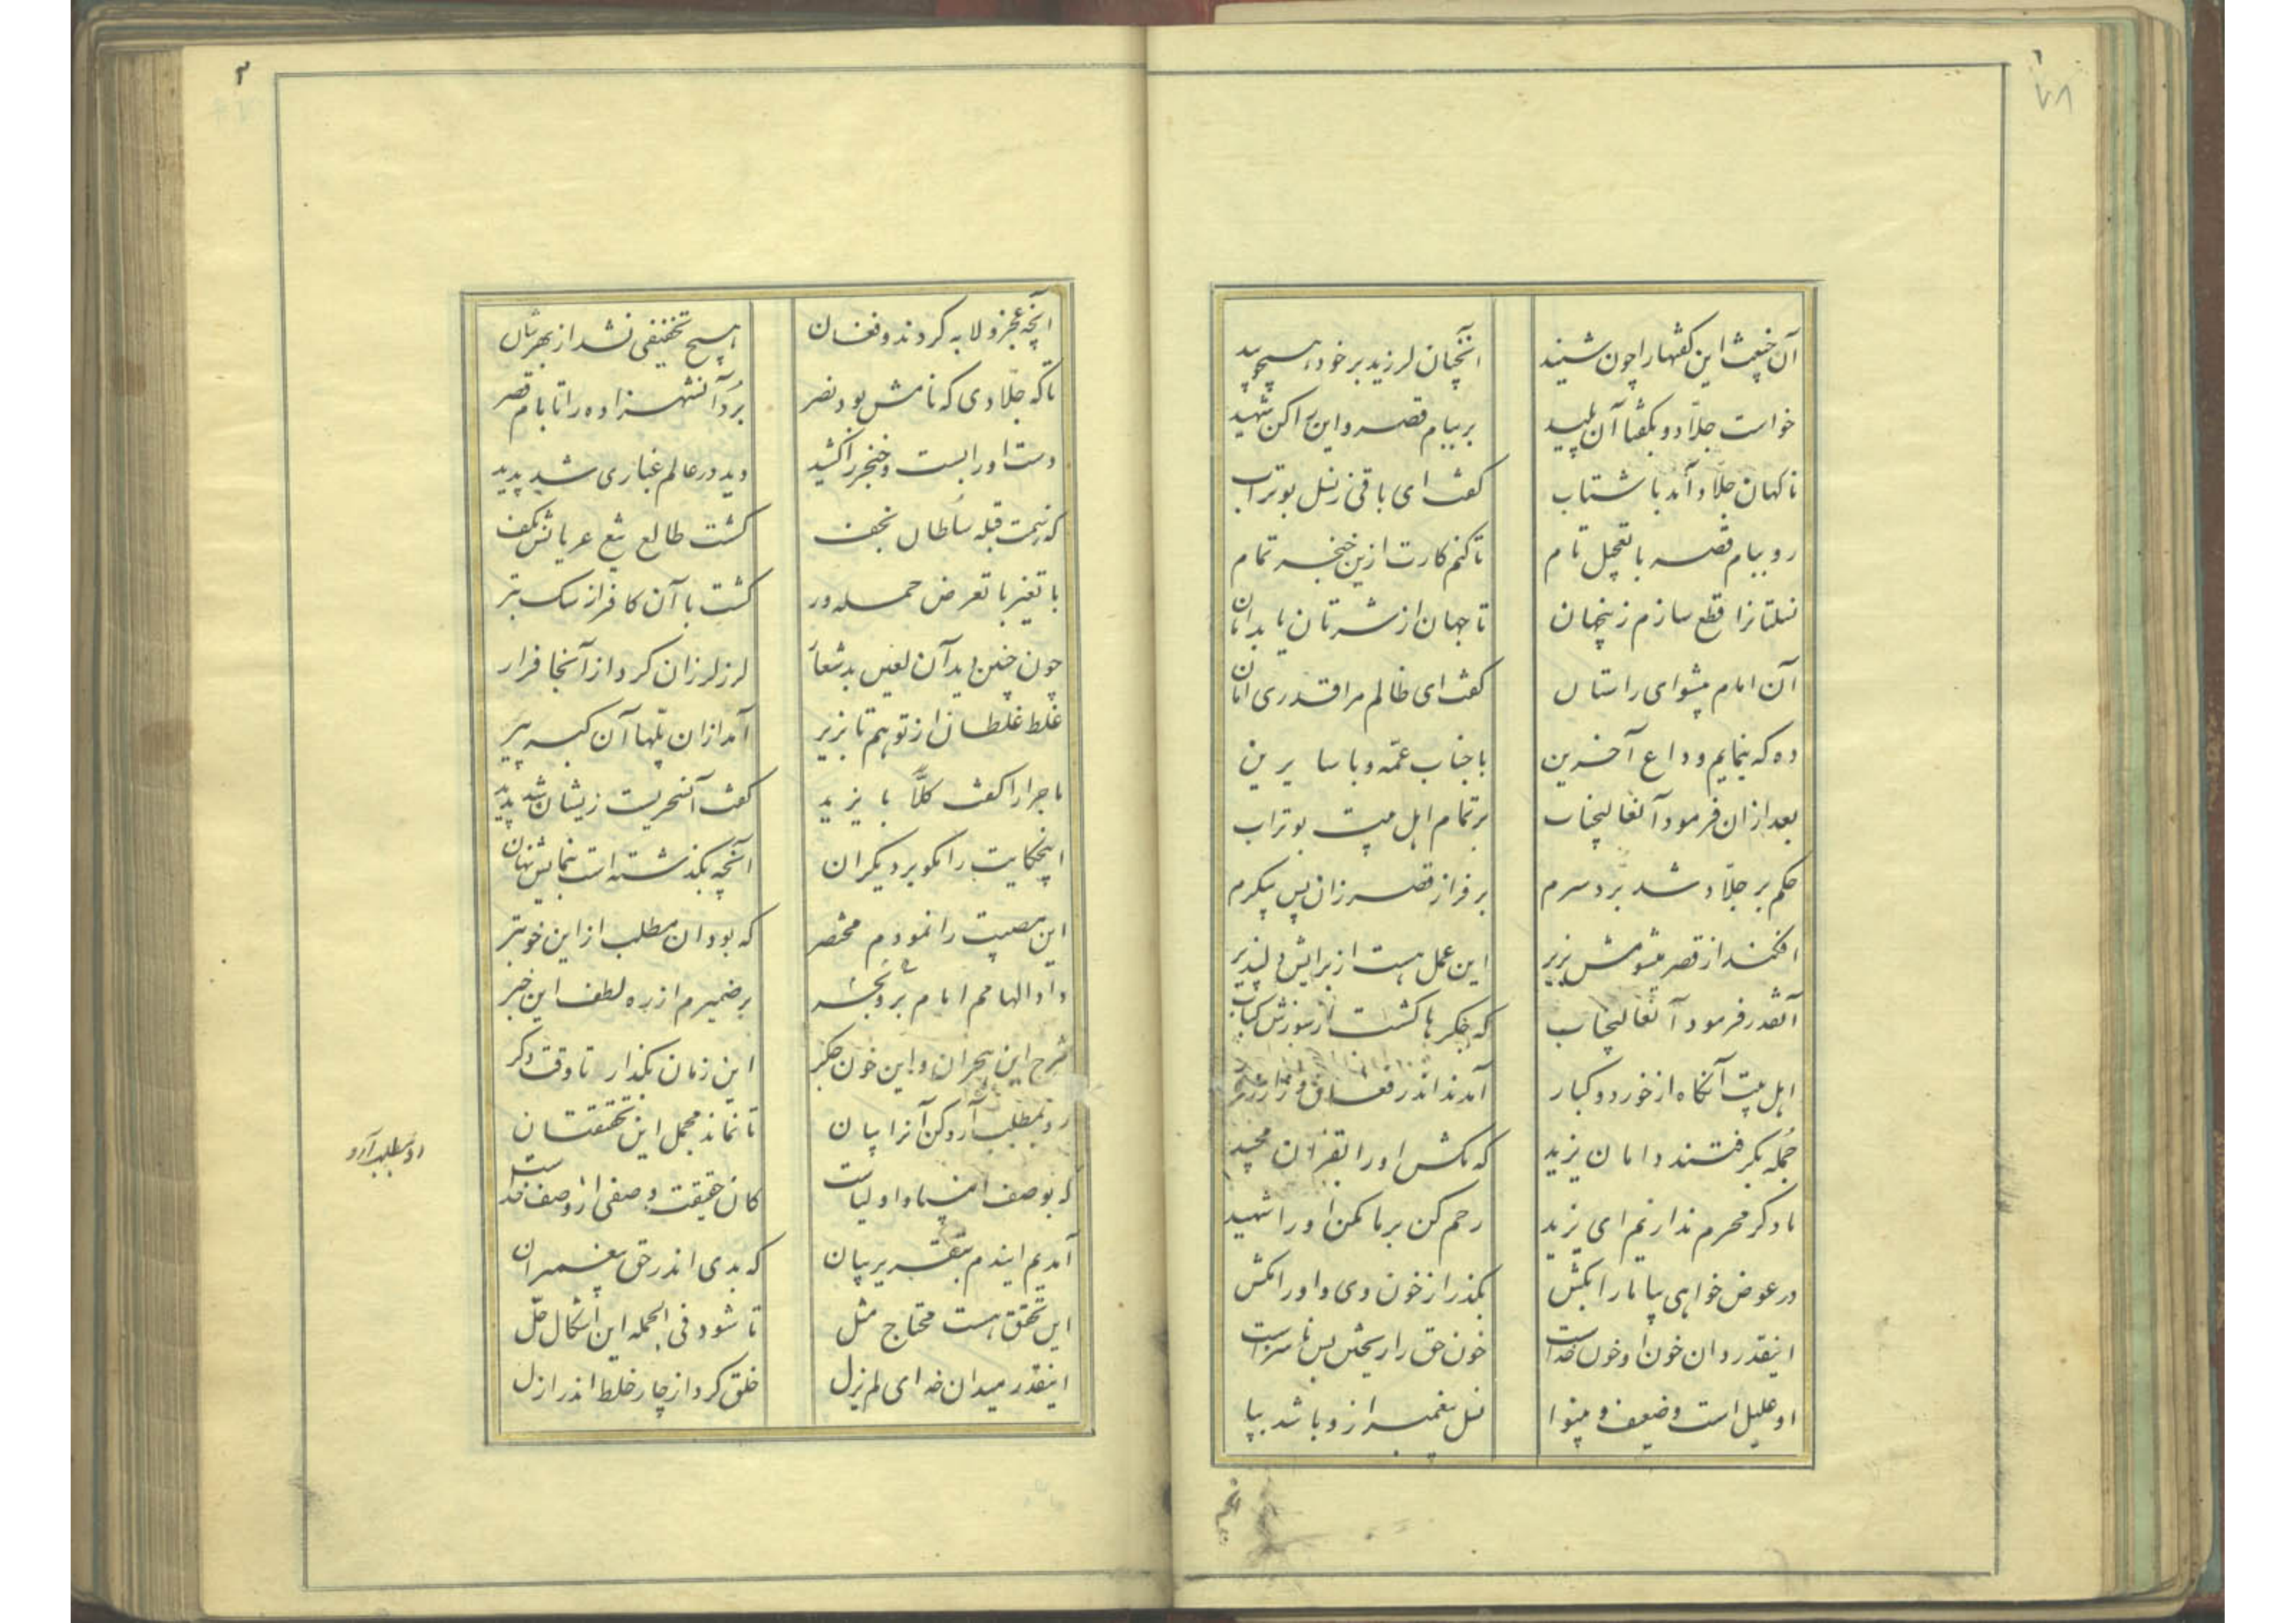 ۱
آن خبیث این گفتها را چون شنید
آنچنان لرزید بر خود همچو بید
خواست جلّاد و بگفتا آن پلید
بر ببام قصر و این را کن شهید
ناگهان جلّاد آمد با شتاب
گفت ای باقی ز نسل بوتراب
رو ببام قصر با تعجیل تام
تا کنم کارت ازین خنجر تمام
نسلتانرا قطع سازم زینجهان
تا جهان از شرتان یابد امان
آن امام پیشوای راستان
گفت ای ظالم مرا قدری امان
ده که بنمایم وداع آخرین
با جناب عمّه و با سایرین
بعد ازان فرمود آنعالیجناب
بر تمام اهل بیت بوتراب
حکم بر جلّاد شد برد سرم
بر فراز قصر زان پس پیکرم
افکنند از قصر میشومش بزیر
این عمل هست از برایش دلپذیر
آنقدر فرمود آنعالیجناب
که جگرها گشت از سوزش کباب
اهل بیت آنگاه از خورد و کبار
آمدند اندر فغان
جمله بگرفتند دامان یزید
که مکش او را بقرآن مجید
ما دگر محرم نداریم ای یزید
رحم کن بر ما مکن او را شهید
در عوض خواهی بیا ما را بکش
بگذر از خون وی و او را مکش
اینقدر دان خون او خون خداست
خون حق را ریختن بس ناسزاست
او علیل است و ضعیف و بینوا
نسل پیغمبر ازو باشد بپا
۲
آنچه عجز و لابه کردند و فغان
هیچ تخفیفی نشد از بهرشان
تا که جلّادی که نامش بود نصر
برد آنشهزاده را تا بام قصر
دست او را بست و خنجر را کشید
دید در عالم غباری شد پدید
که ز سمت قبله سُلطان نجف
گشت طالع تیغ عریانش بکف
با تغیّر با تعرض حمله ور
گشت با آن کافر از سک بتر
چون چنین دید آن لعین بد شعار
لرز لرزان کرد از آنجا فرار
غلط غلطان از توهم تا بزیر
آمد ازان پلها آن کبر پیر
ماجرا را گفت کلّاً با یزید
گفت آنسحریست زیشان شد پدید
اینحکایت را مگو بر دیگران
آنچه بگذشته است بنمایش نهان
این مصیبت را نمودم مختصر
که بود ان مطلب از این خوبتر
داد الهامم امام بر و بحر
بر ضمیرم از ره لطف این خبر
شرح این هجران و این خون جگر
این زمان بگذار تا وقت دگر
رو بمطلب آرو کن آنرا بیان
تا نماند مجمل این تحقیقتان
که بوصف انبیا و اولیاست
کان حقیقت وصفی از وصف خداست
آمدیم ایندم بتقریر بیان
که بدی اندر حق پیغمبران
این تحقق هست محتاج مثل
تا شود فی الجمله این اشکال حلّ
اینقدر میدان خدای لم یزل
خلق کرد از چار خلط اندر ازل
رو بمطلب آرو
آنچه